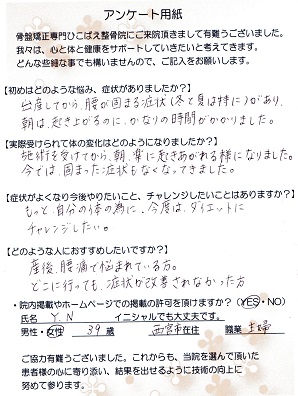 アンケート用紙
骨盤矯正専門ひこばえ整骨院にご来院頂きまして有難うございました。
我々は、心と体と健康をサポートしていきたいと考えてきます。
どんな些細な事でも構いませんので、ご記入をお願いします。
【初めはどのような悩み、症状がありましたか?】
出産してから、腰が固まる症状(冬と夏は特に)があり、
朝は、起き上がるのに、かなりの時間がかかりました。
【実際受けられて体の変化はどのようになりましたか?】
施術を受けてから、朝、楽に起きあがれる様になりました。
今では、固まった症状もなくなってきました。
【症状がよくなり今後やりたいこと、チャレンジしたいことはありますか?】
もっと、自分の体の為に、今度は、ダイエットに
チャレンジしたい。
【どのような人におすすめしたいですか?】
産後、腰痛で悩まれている方。
どこに行っても、症状が改善されなかった方
・院内掲載やホームページでの掲載の許可を頂けますか?(YES・NO)
氏名 Y.N イニシャルでも大丈夫です。
男性・女性 39歳 西宮市在住 職業 主婦
ご協力有難うございました。これからも、当院を選んで頂いた
患者様の心に寄り添い、結果を出せるように技術の向上に
努めて参ります。